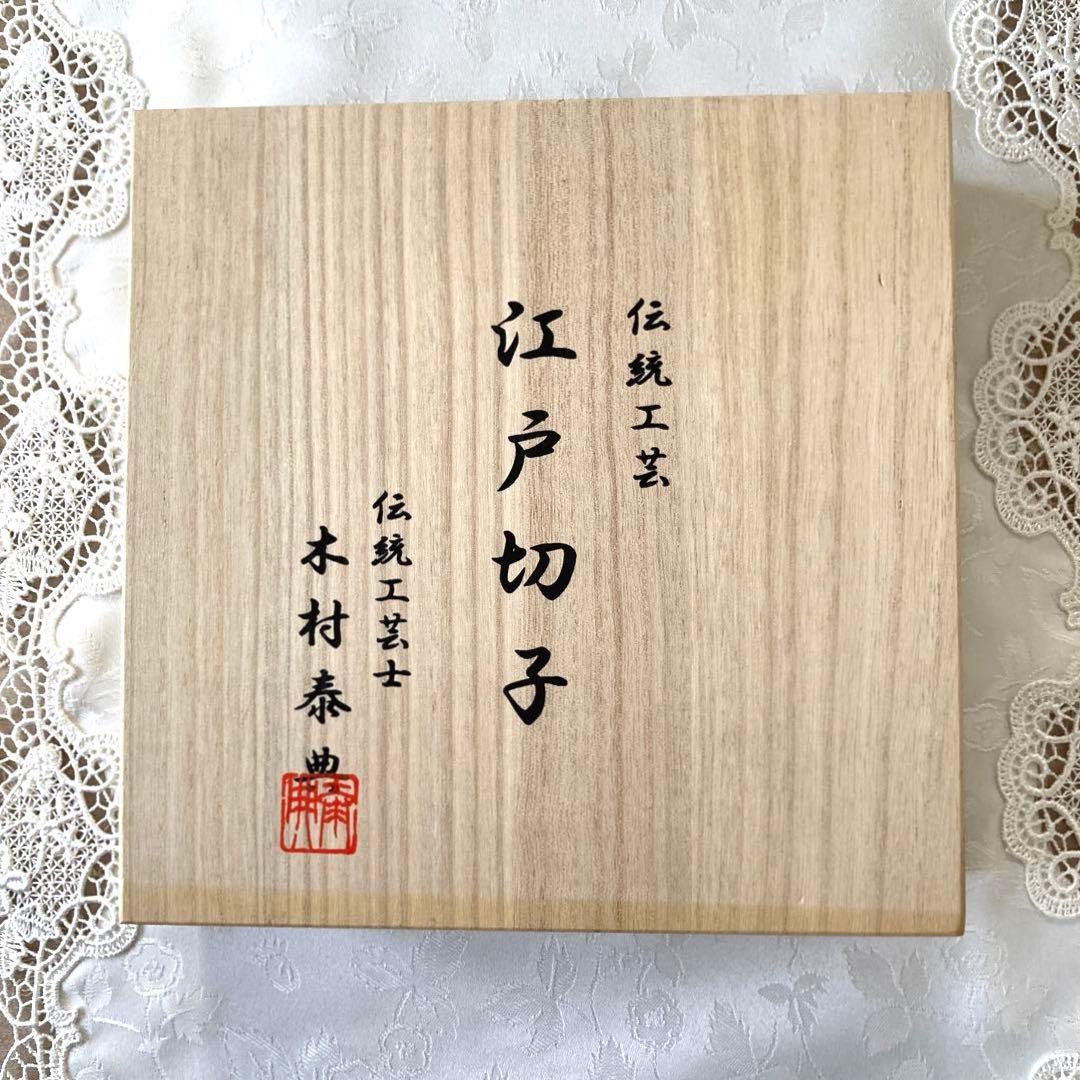 伝統工芸
江戸切子
伝統工芸士
木村泰典
泰典